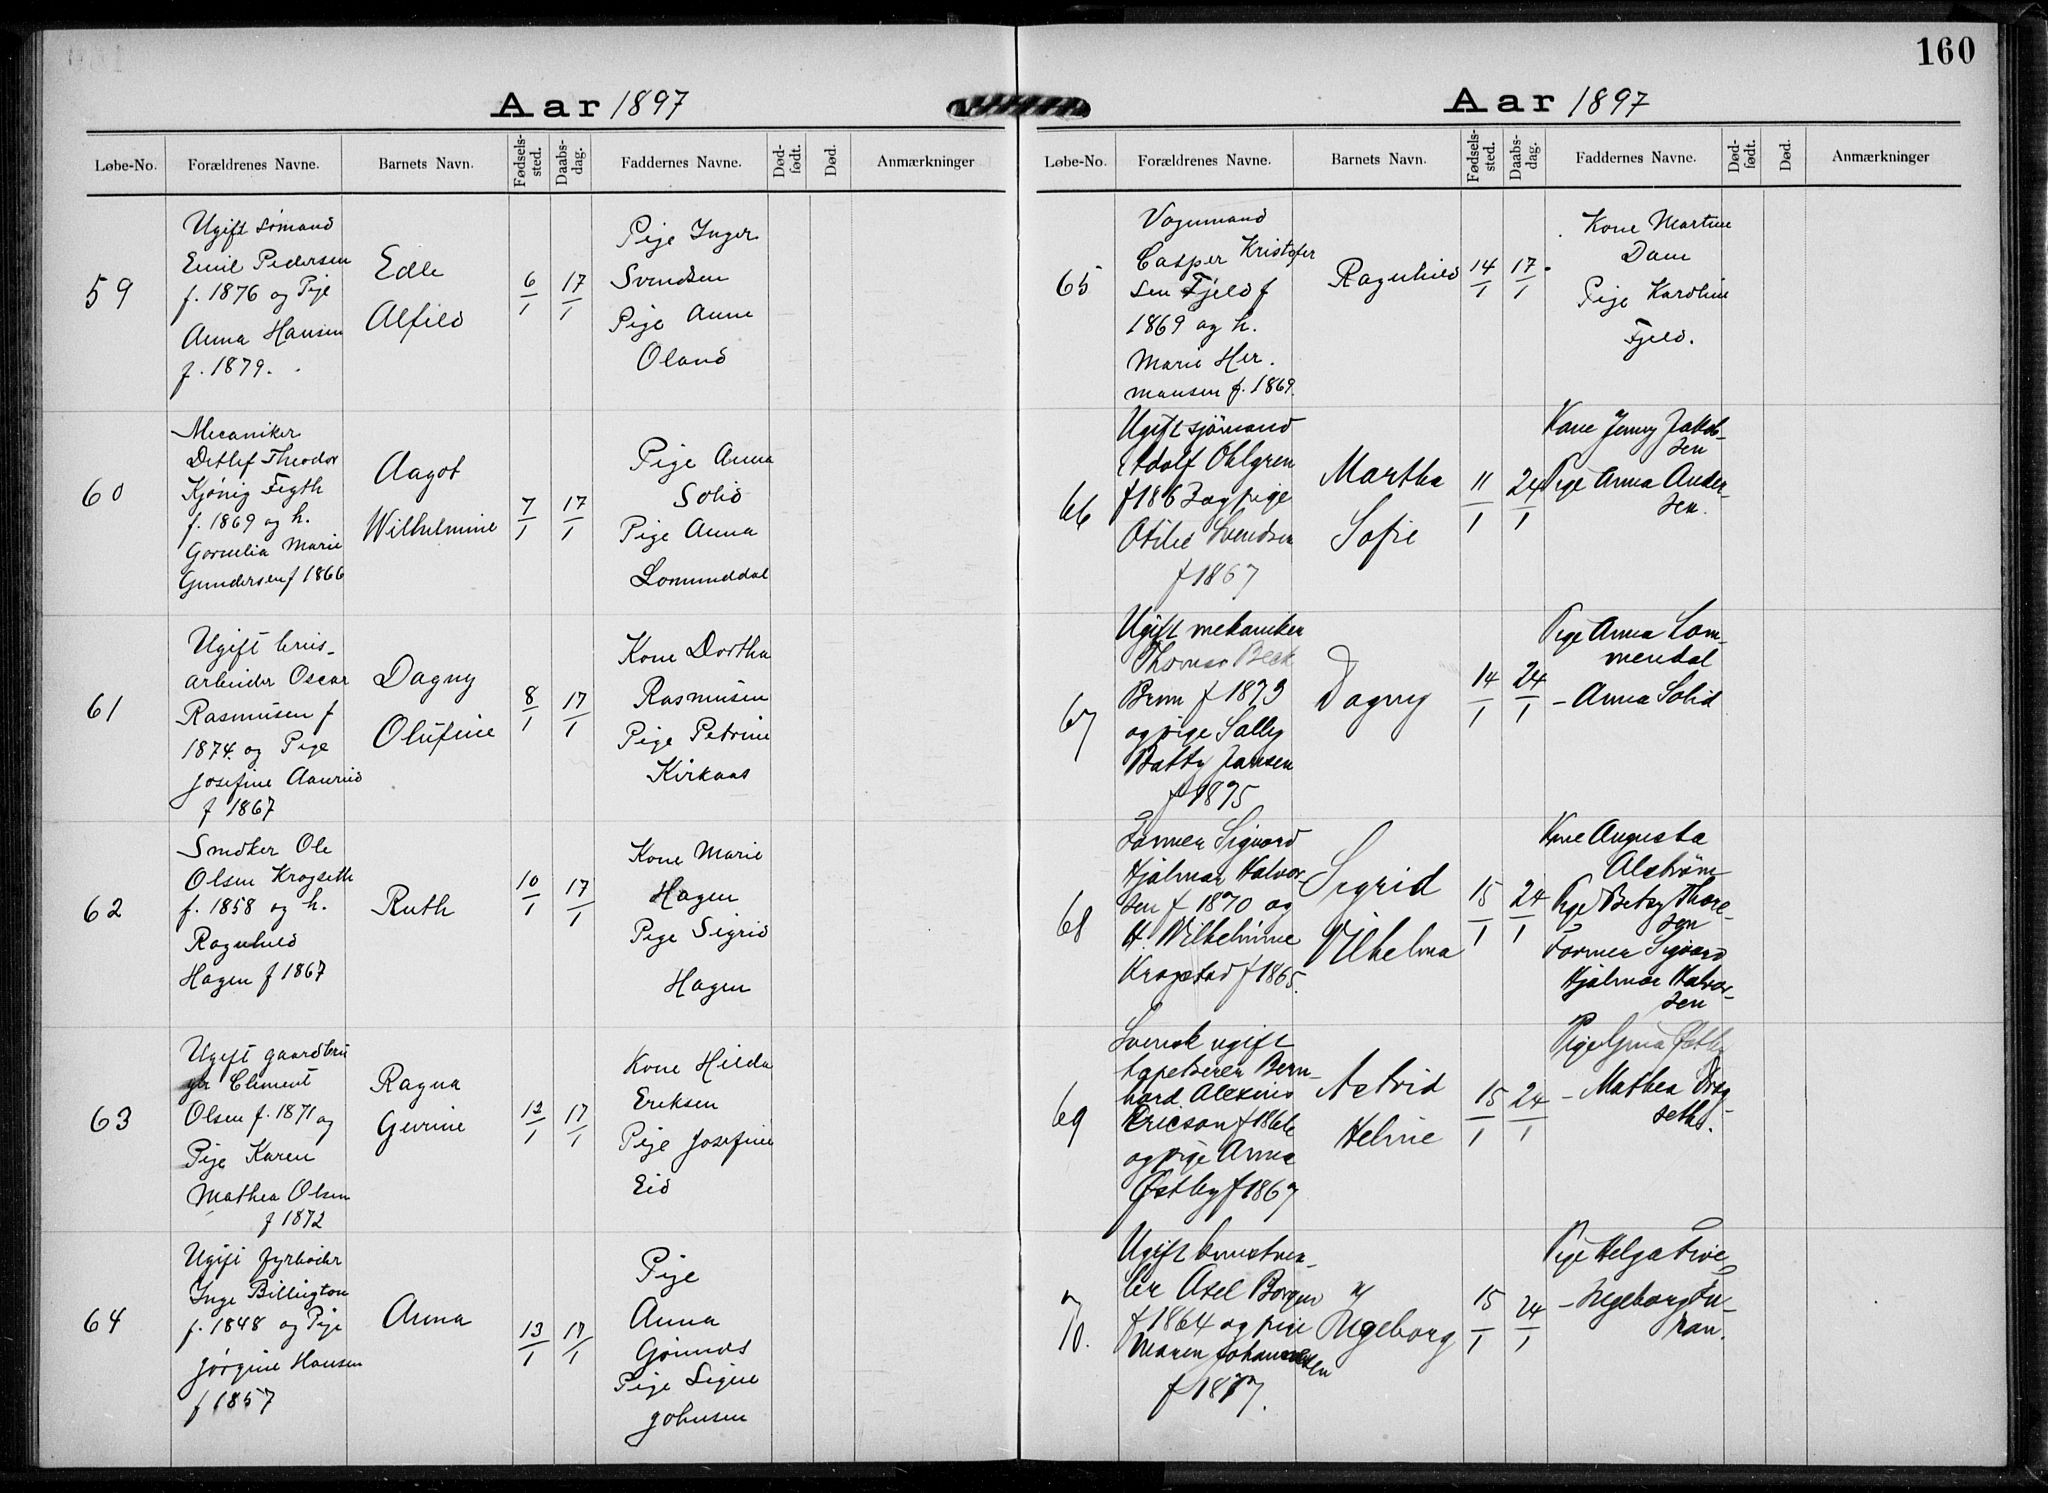 160
Aar 1897
Løbe-No. Forældrenes Navne. Barnets Navn. Fødsels-sted. Daabs-dag. Faddernes Navne. Død-født. Død. Anmærkninger
59
Ugift sømand
Emil Pedersen
f. 1876 og Pige
Anna Hansen
f. 1879.
Edle
Alfild
6/1
17/1
Pige Inger
Svendsen
Pige Anne
Oland
60
Mecaniker
Detlef Theodor
Kjönig Fegth
f. 1869 og h.
Gornelia Marie
Gundersen f 1866
Aagot
Wilhelmine
7/1
17/1
Pige Anna
Solid
Pige Anna
Lomunddal
61
Ugift brus-
arbeider Oscar
Rasmusen f
1874. og Pige
Josefine Aanrud
f 1867
Dagny
Olufine
8/1
17/1
Kone Dortha
Rasmusen
Pige Petrine
Kirkaas
62
Smöker Ole
Olsen Krogseth
f. 1858 og h.
Ragnhild
Hagen f 1867
Ruth
10/1
17/1
Kone Marie
Hagen
Pige Sigrid
Hagen
63
Ugift gaardbru
ger Clement
Olsen f. 1871 og
Pige Karen
Mathea Olsen
f 1872
Ragna
Gurine
12/1
17/1
Kone Hilda
Eriksen
Pige Josefine
Eid
64
Ugift fyrbøder
Inge Billington
f. 1848 og Pige
Jørgine Hansen
f 1857
Anna
13/1
17/1
Pige
Anna
Pige Signe
Johnsen
Aar 1897
Løbe-No. Forældrenes Navne. Barnets Navn. Fødsels-sted. Daabs-dag. Faddernes Navne. Død-født. Død. Anmærkninger
65
Vognmand
Casper Kristofer
sen Fjeld f
1869 og h.
Marie Her.
mansen f. 1869.
Ragnhild
14/1
17/1
Kone Martine
Dam
Pige Karoline
Fjeld.
66
Ugift sjömand
Adolf Ohlgren
f 1863 og pige
Otilie Svendsen
f 1867
Martha
Sofie
11/1
24/1
Kone Jenny Jakob-
sen
Pige Anna Ander-
sen.
67
Ugift mekaniker
Thomas Beck
Brun f 1873
og pige Sally
Batty Jansen
f 1875
Dagny
14/1
24/1
Pige Anna Lom-
mendal
- Anna Solid
68
Former Sigvard
Hjalmar Halvor
sen f 1870 og
H. Wilhelmine
Krogstad f 1865.
Sigrid
Vilhelma
15/1
24/1
Kone Augusta
Alström
Pige Betzy Thore-
sen
Former Sigvard
Hjalmar Halvor-
sen
69
Svensk ugift
tapetserer Bern-
hard Alexius
Ericson f 1866
og pige Anna
Østby f 1867
Astrid
Helmie
15/1
24/1
Pige Gina Østby
- Mathea Krog-
seth.
70.
Ugift
ler Axel Borgen
f 1864 og pige
Maren Johannessen
f 1877.
Ingeborg
15/1
24/1
Pige Helga Five
- Ingeborg Fu-
ran.